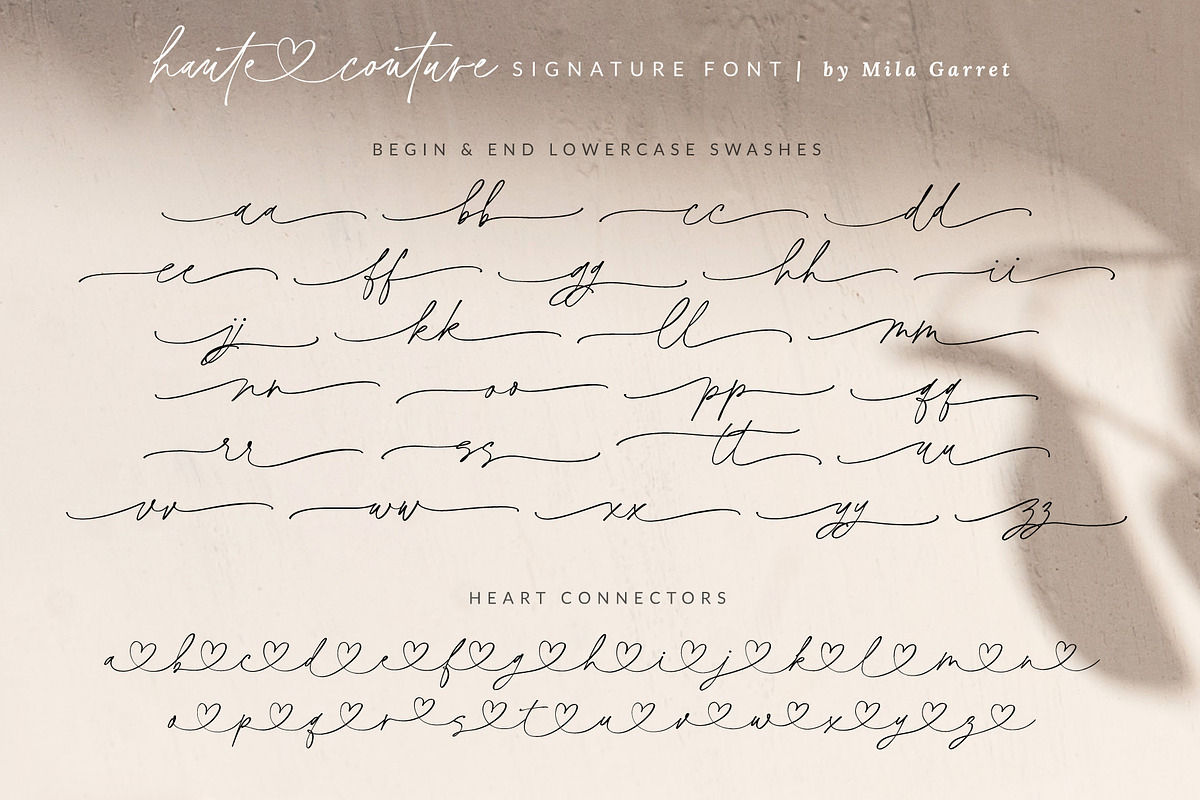 haute couture SIGNATURE FONT | by Mila Garret
BEGIN & END LOWERCASE SWASHES
aa bb cc dd
ee ff gg hh ii
jj kk ll mm
nn oo pp qq
rr ss tt uu
vv ww xx yy zz
HEART CONNECTORS
a♡b♡c♡d♡e♡f♡g♡h♡i♡j♡k♡l♡m♡n♡
o♡p♡q♡r♡s♡t♡u♡v♡w♡x♡y♡z♡